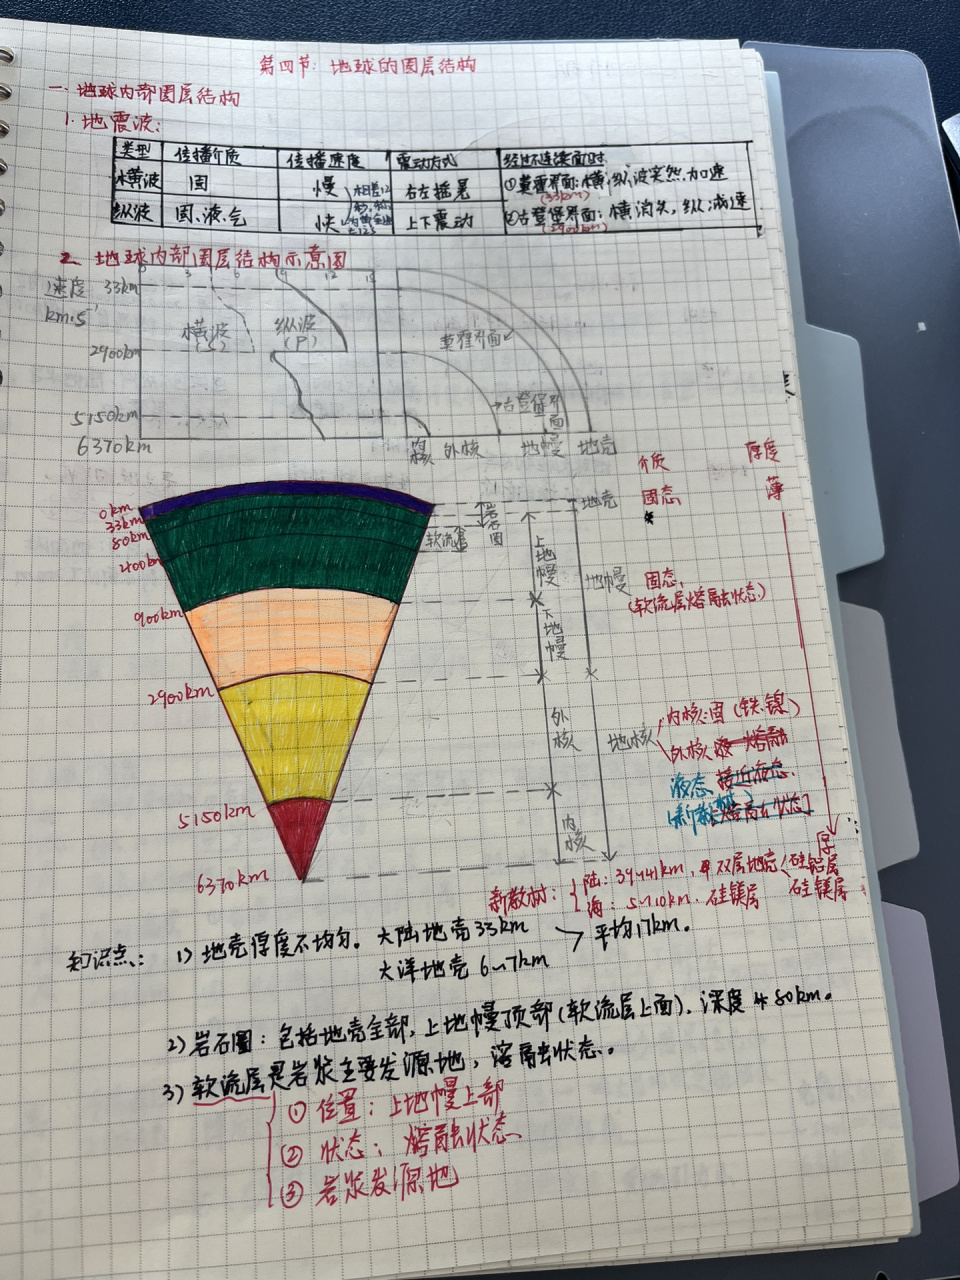 第四节：地球的圈层结构
一、地球内部圈层结构
1. 地震波：
类型 传播介质 传播速度 震动方式 经过不连续面时
横波 固 慢 右左摇晃 ①莫霍界面：横，纵波突然加速
(33km)
纵波 固、液、气 快 上下震动 ②古登堡界面：横消失，纵减速
(2900km)
2. 地球内部圈层结构示意图
速度 km·s⁻¹
0 3 6 9 12 15
33km
横波 (S) 纵波 (P) 莫霍界面
2900km
古登堡界面
5150km
6370km
内核 外核 地幔 地壳
介质 厚度
0km 岩石圈 地壳 固态 薄
33km
80km 软流层 上地幔
400km
地幔 固态，
(软流层熔融状态)
900km
下地幔
2900km
外核 地核 内核：固 (铁、镍)
外核
液态
5150km
内核
厚
6370km
新教材： 陆：39~41km，双层地壳 硅铝层
硅镁层
海：5~10km. 硅镁层
知识点： 1) 地壳厚度不均匀。大陆地壳33km
平均17km.
大洋地壳 6~7km
2) 岩石圈：包括地壳全部，上地幔顶部(软流层上面)，深度 80km.
3) 软流层是岩浆主要发源地，溶融状态.
① 位置：上地幔上部
② 状态：熔融状态
③ 岩浆发源地